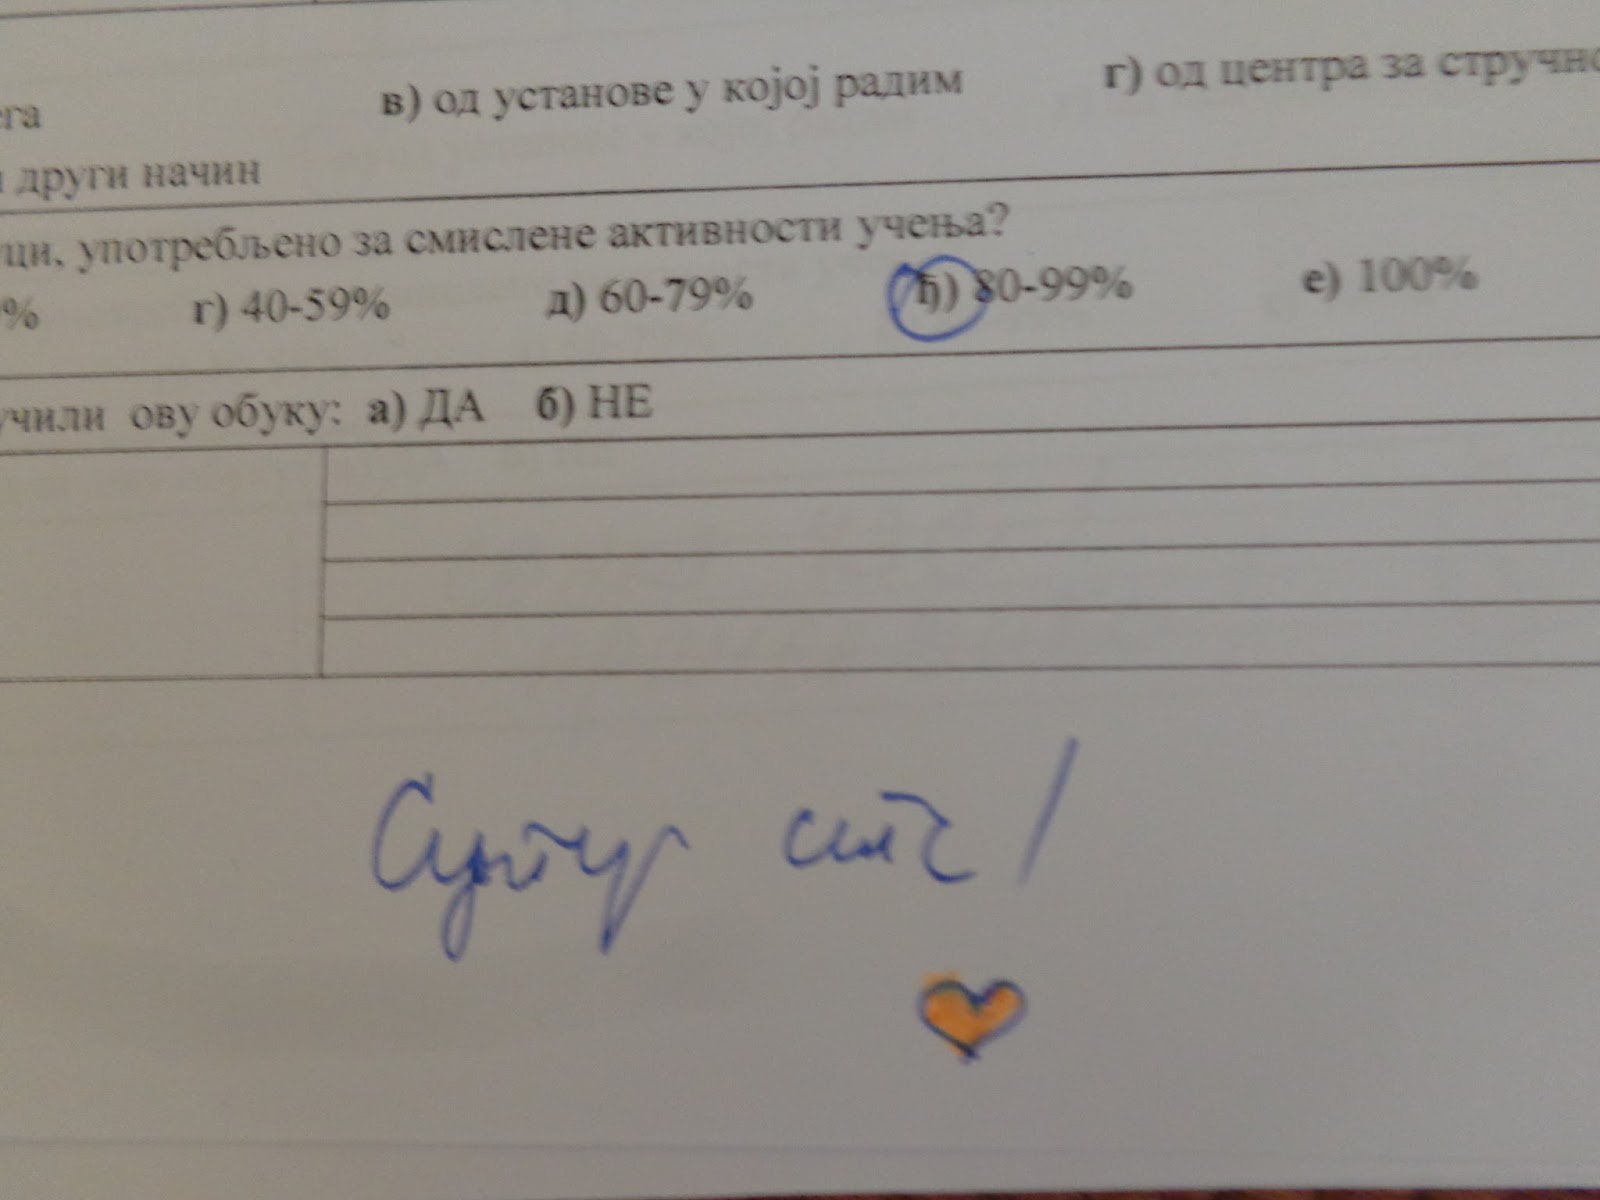 ега в) од установе у којој радим г) од центра за стручно
други начин
уци, употребљено за смислене активности учења?
% г) 40-59% д) 60-79% ђ) 80-99% е) 100%
учили ову обуку: а) ДА б) НЕ
Супер сте!